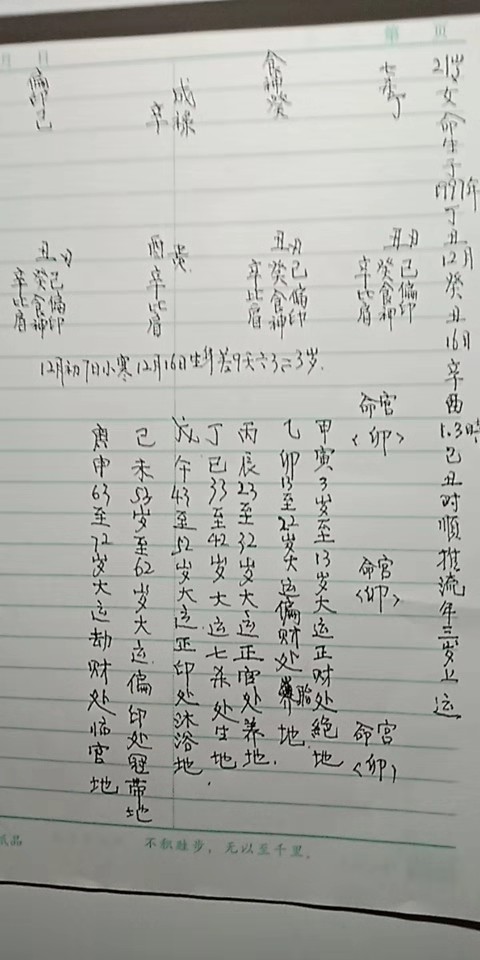 第 页
月 日
21岁女命生于1997年丁丑12月癸丑16日辛酉1.3時己丑时順推流年三岁上运
七杀丁
食神癸
辛
偏印己
丑
己偏印
癸食神
辛比肩
丑
己偏印
癸食神
辛比肩
酉
辛比肩
丑
己偏印
癸食神
辛比肩
12月初7日小寒12月16日生年差9天六3=3岁.
命宫<卯>
命宫<卯>
命宫<卯>
甲寅3岁至13岁大运正财处絕地
乙卯13至22岁大运偏财处胎地.
丙辰23至32岁大运正官处养地.
丁巳33至42岁大运七杀处生地.
戊午43至52岁大运正印处沐浴地
己未53岁至62岁大运偏印处冠帶地
庚申63至72岁大运劫财处临官地
不积跬步，无以至千里.
纸品